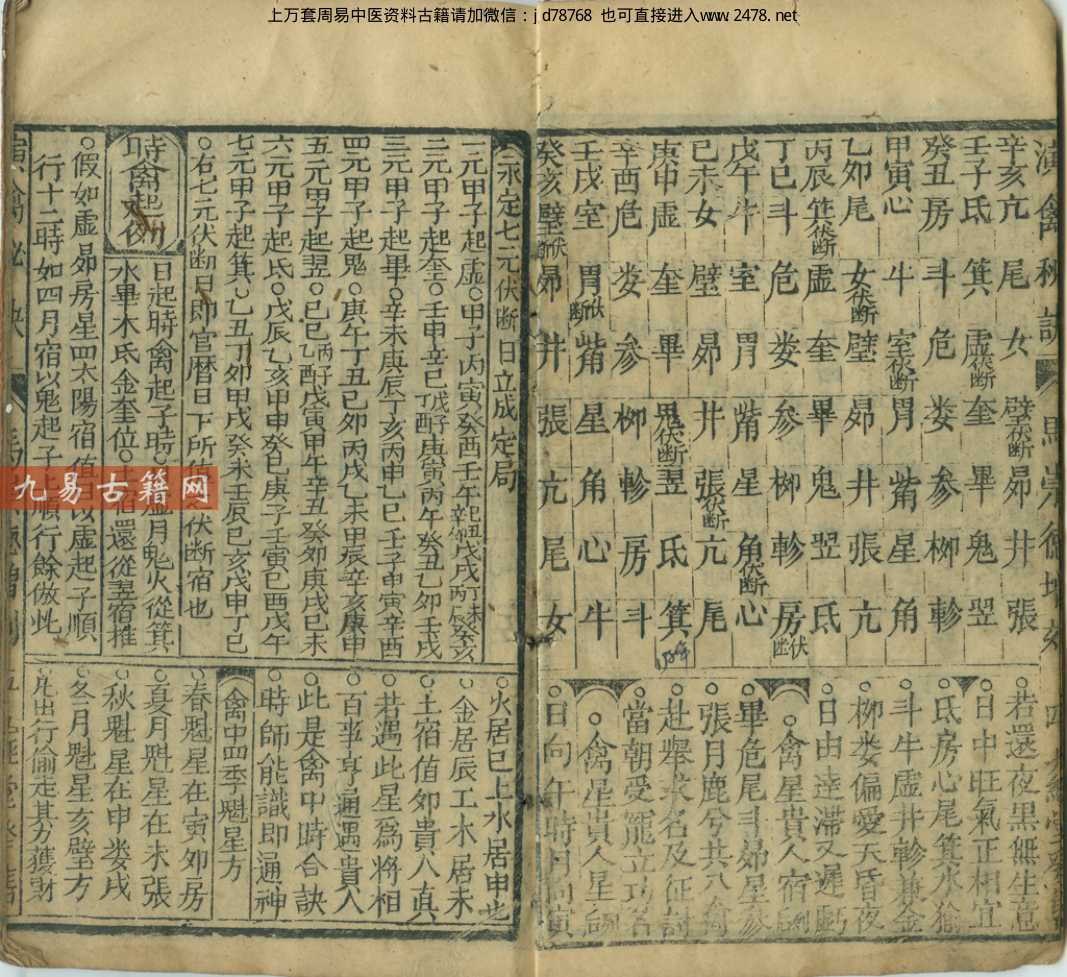 上万套周易中医资料古籍请加微信：jd78768 也可直接进入www.2478.net
演禽秘訣
辛亥亢 尾 女 壁伏断 昴 井 張
壬子氐 箕 虛伏断 奎 畢 鬼 翌
癸丑房 斗 危 娄 参 柳 軫
甲寅心 牛 室伏断 胃 觜 星 角
乙夘尾 女伏断 壁 昴 井 張 亢
丙辰箕伏断 虛 奎 畢 鬼 翌 氐
丁巳斗 危 娄 参 柳 軫 房伏断
戊午牛 室 胃 觜 星 角伏断 心
已未女 壁 昴 井 張伏断 亢 尾
庚申虛 奎 畢 鬼伏断 翌 氐 箕
辛酉危 娄 参 柳 軫 房 斗
壬戌室 胃伏断 觜 星 角 心 牛
癸亥壁伏断 昴 井 張 亢 尾 女
若還夜黒無生意
日中旺氣正相宜
氐房心尾箕水
斗牛虛井軫兼金
柳娄偏愛天昏夜
日由逹滞又遲
禽星貴人宿
畢危尾斗昴星参
張月鹿兮共八
赴舉求名及征討
當朝受寵立功名
禽星貴人星
日向午時月向寅
永定七元伏断日立成定局
一元甲子起虛○即甲子丙寅癸酉壬午
二元甲子起奎○壬申辛巳
三元甲子起畢○辛未庚辰丁亥丙申巳巳壬子甲寅辛酉
四元甲子起鬼○庚午丁丑巳夘丙戌乙未甲辰辛亥庚申
五元甲子起翌○巳巳丙子乙酉戊寅甲午辛丑癸夘庚戌巳未
六元甲子起氐○戊辰乙亥甲申癸巳庚子壬寅巳酉戊午
七元甲子起箕○乙丑丁夘甲戌癸未壬辰巳亥戊申丁巳
○右七元伏断日即官曆日下所值之伏断宿也
時禽起例
日起時禽起子時虛月鬼火從箕
水畢木氐金奎位○土宿還從翌宿推
○假如虛昴房星四太陽宿值日以虛起子順
行十二時如四月宿以鬼起子上順行餘倣此
○火居巳上水居申也
○金居辰工木居未
○土宿值夘貴人真
○若遇此星為將相
○百事亨通遇貴人
○此是禽中時合訣
○時師能識即通神
禽中四季魁星方
○春魁星在寅夘房
○夏月魁星在未張
○秋魁星在申娄戌
○冬月魁星亥壁方
○凡出行偷走其方獲財
九易古籍网